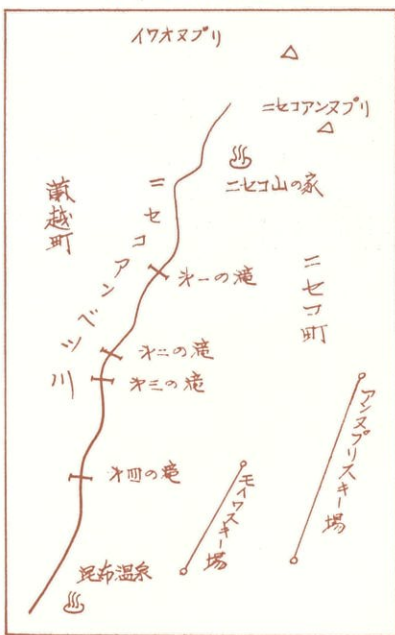 イワオヌプリ
ニセコアンヌプリ
ニセコ山の家
蘭越町
ニセコアンベツ川
ニセコ町
才一の滝
才二の滝
才三の滝
才四の滝
アンヌプリスキー場
モイワスキー場
昆布温泉